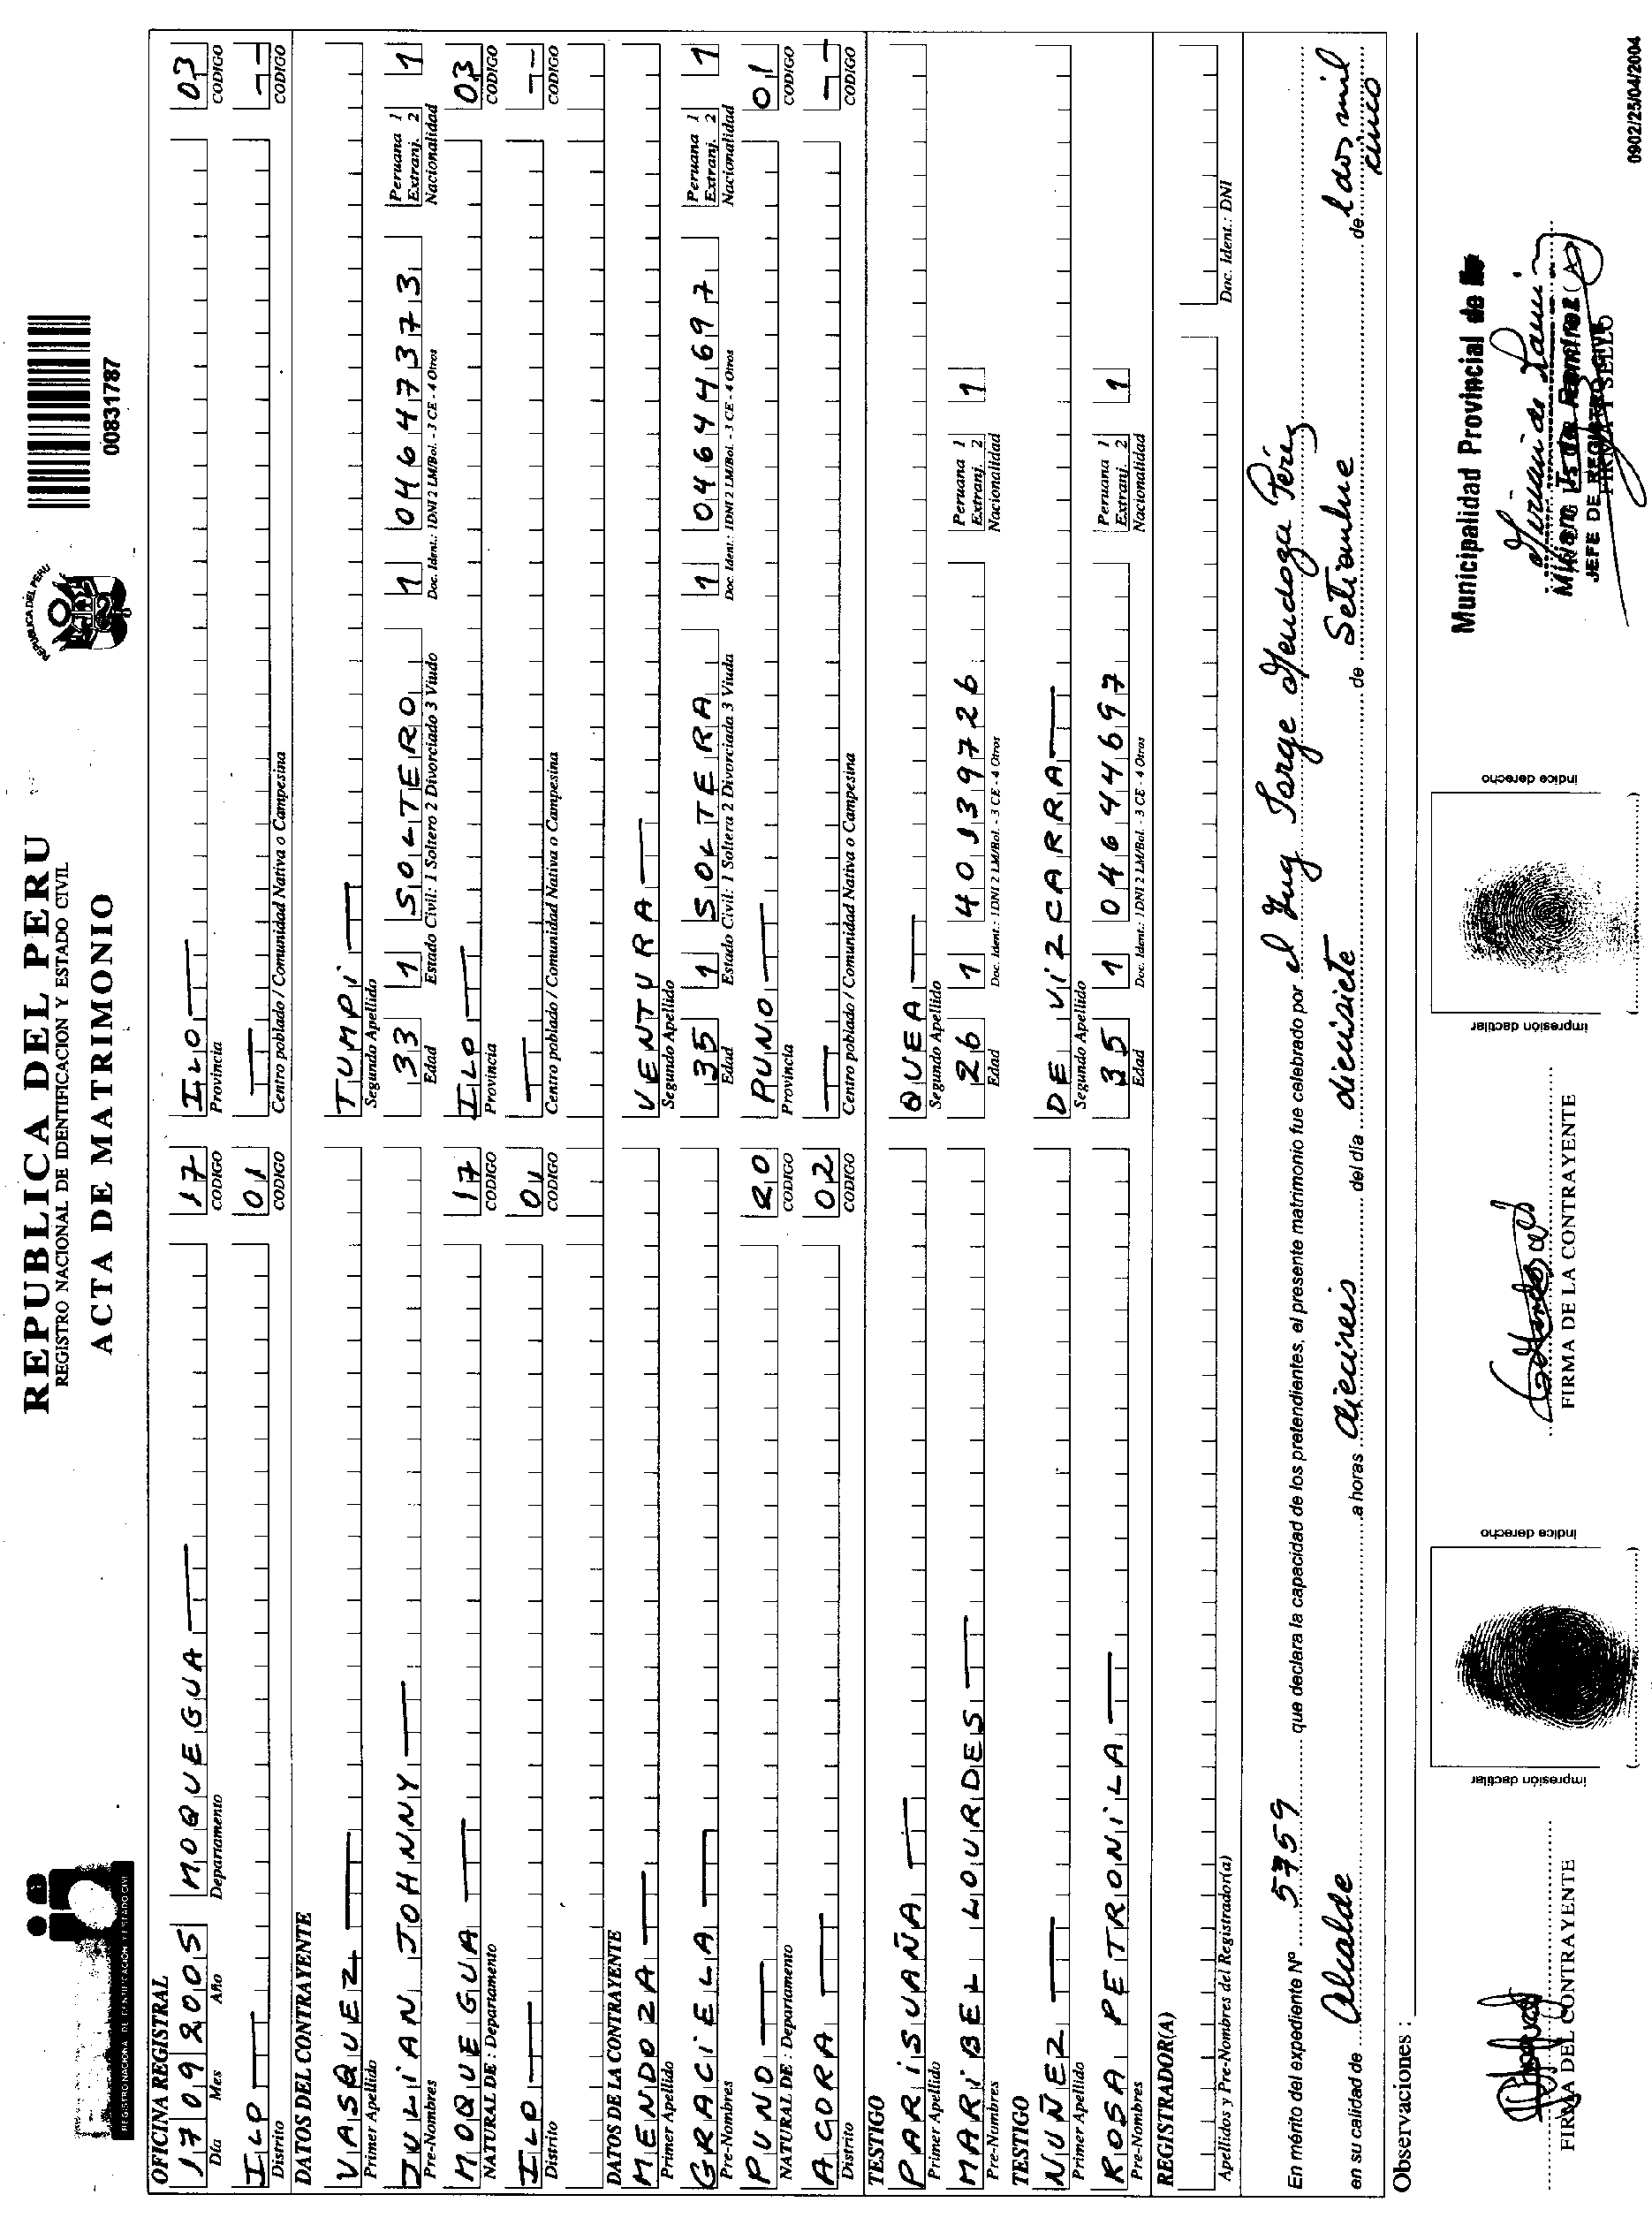 REPUBLICA DEL PERU
REGISTRO NACIONAL DE IDENTIFICACION Y ESTADO CIVIL
ACTA DE MATRIMONIO
REPUBLICA DEL PERU
00831787
REGISTRO NACIONAL DE IDENTIFICACION Y ESTADO CIVIL
OFICINA REGISTRAL
17 09 2005 MOQUEGUA 17 ILO 03
Día Mes Año Departamento CODIGO Provincia CODIGO
ILO 01
Distrito CODIGO Centro poblado / Comunidad Nativa o Campesina CODIGO
DATOS DEL CONTRAYENTE
VASQUEZ TUMPi
Primer Apellido Segundo Apellido
JULiAN JOHNNY 33 1 SOLTERO 1 04647373 Peruana 1 Extranj. 2 1
Pre-Nombres Edad Estado Civil: 1 Soltero 2 Divorciado 3 Viudo Doc. Ident.: 1DNI 2 LM/Bol. - 3 CE - 4 Otros Nacionalidad
MOQUEGUA 17 ILO 03
NATURAL DE : Departamento CODIGO Provincia CODIGO
ILO 01
Distrito CODIGO Centro poblado / Comunidad Nativa o Campesina CODIGO
DATOS DE LA CONTRAYENTE
MENDOZA VENTURA
Primer Apellido Segundo Apellido
GRACiELA 35 1 SOLTERA 1 04644697 Peruana 1 Extranj. 2 1
Pre-Nombres Edad Estado Civil: 1 Soltera 2 Divorciada 3 Viuda Doc. Ident.: 1DNI 2 LM/Bol. - 3 CE - 4 Otros Nacionalidad
PUNO 20 PUNO 01
NATURAL DE : Departamento CODIGO Provincia CODIGO
ACORA 02
Distrito CODIGO Centro poblado / Comunidad Nativa o Campesina CODIGO
TESTIGO
PARiSUAÑA QUEA
Primer Apellido Segundo Apellido
MARiBEL LOURDES 26 1 40139726 Peruana 1 Extranj. 2 1
Pre-Nombres Edad Doc. Ident.: 1DNI 2 LM/Bol. - 3 CE - 4 Otros Nacionalidad
TESTIGO
NUÑEZ DE ViZCARRA
Primer Apellido Segundo Apellido
ROSA PETRONiLA 35 1 04644697 Peruana 1 Extranj. 2 1
Pre-Nombres Edad Doc. Ident.: 1DNI 2 LM/Bol. - 3 CE - 4 Otros Nacionalidad
REGISTRADOR(A)
Apellidos y Pre-Nombres del Registrador(a) Doc. Ident.: DNI
En mérito del expediente Nº 5759 que declara la capacidad de los pretendientes, el presente matrimonio fue celebrado por el Ing Jorge Mendoza Pérez
en su calidad de Alcalde a horas dieciseis del día diecisiete de Setiembre de dos mil cinco
Observaciones :
impresión dactilar índice derecho impresión dactilar índice derecho
Municipalidad Provincial de Ilo
JEFE DE REGISTRO CIVIL
FIRMA Y SELLO
FIRMA DEL CONTRAYENTE FIRMA DE LA CONTRAYENTE
0902/25/04/2004